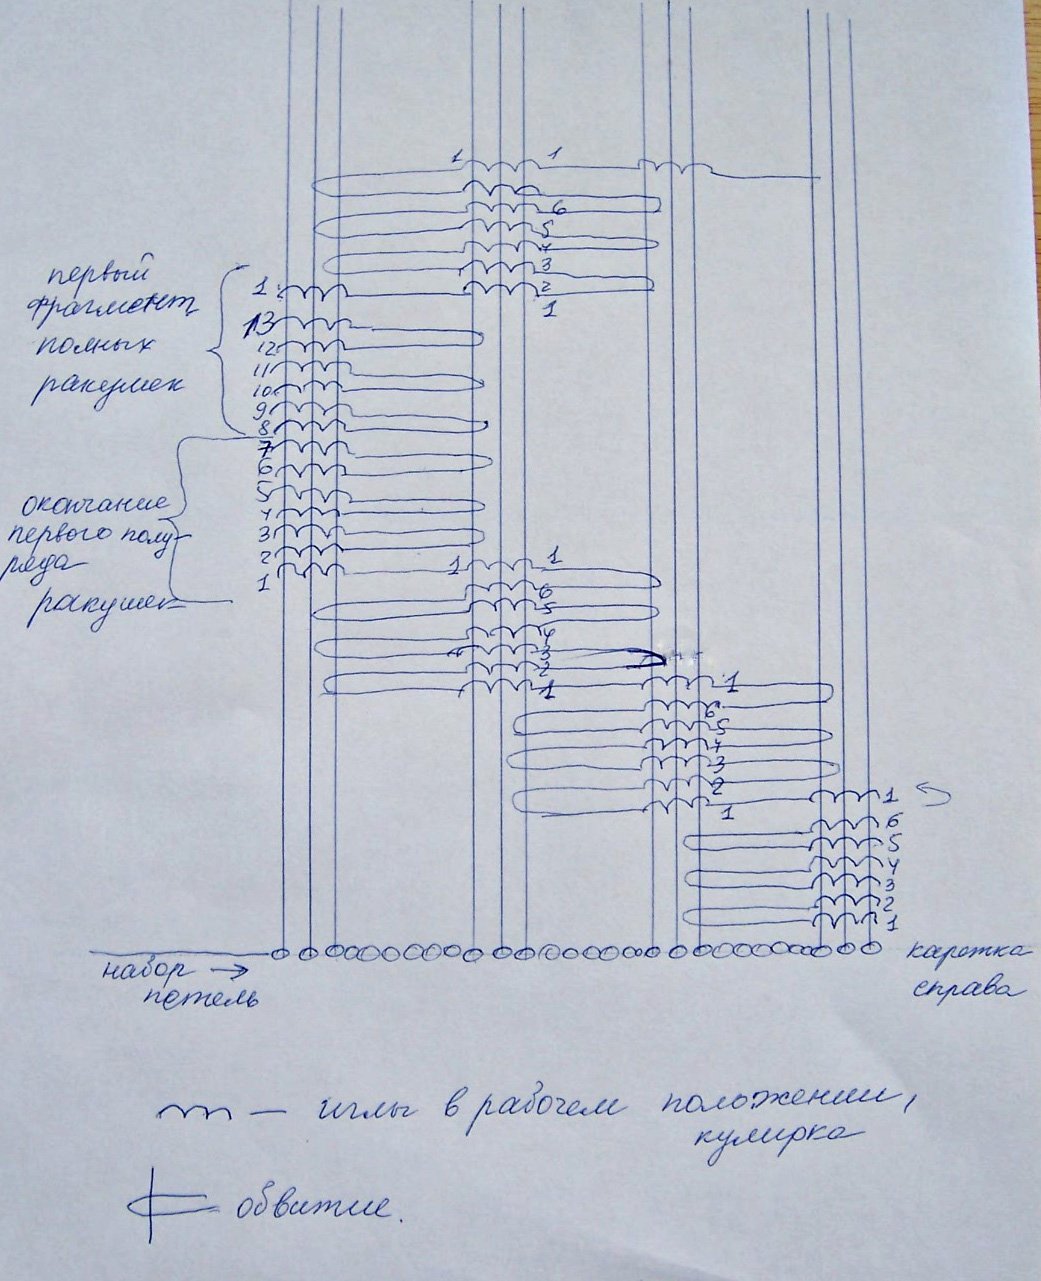 1 1
6
5
4
3
2
1
первый
фрагмент
полных
ракушек
1
13
12
11
10
9
8
7
6
5
4
3
2
1
окончание
первого полу-
ряда
ракушек
1 1
6
5
4
3
2
1
1
6
5
4
3
2
1
1
6
5
4
3
2
1
набор →
петель
каретка
справа
— иглы в рабочем положении,
кулирка
обвитие.